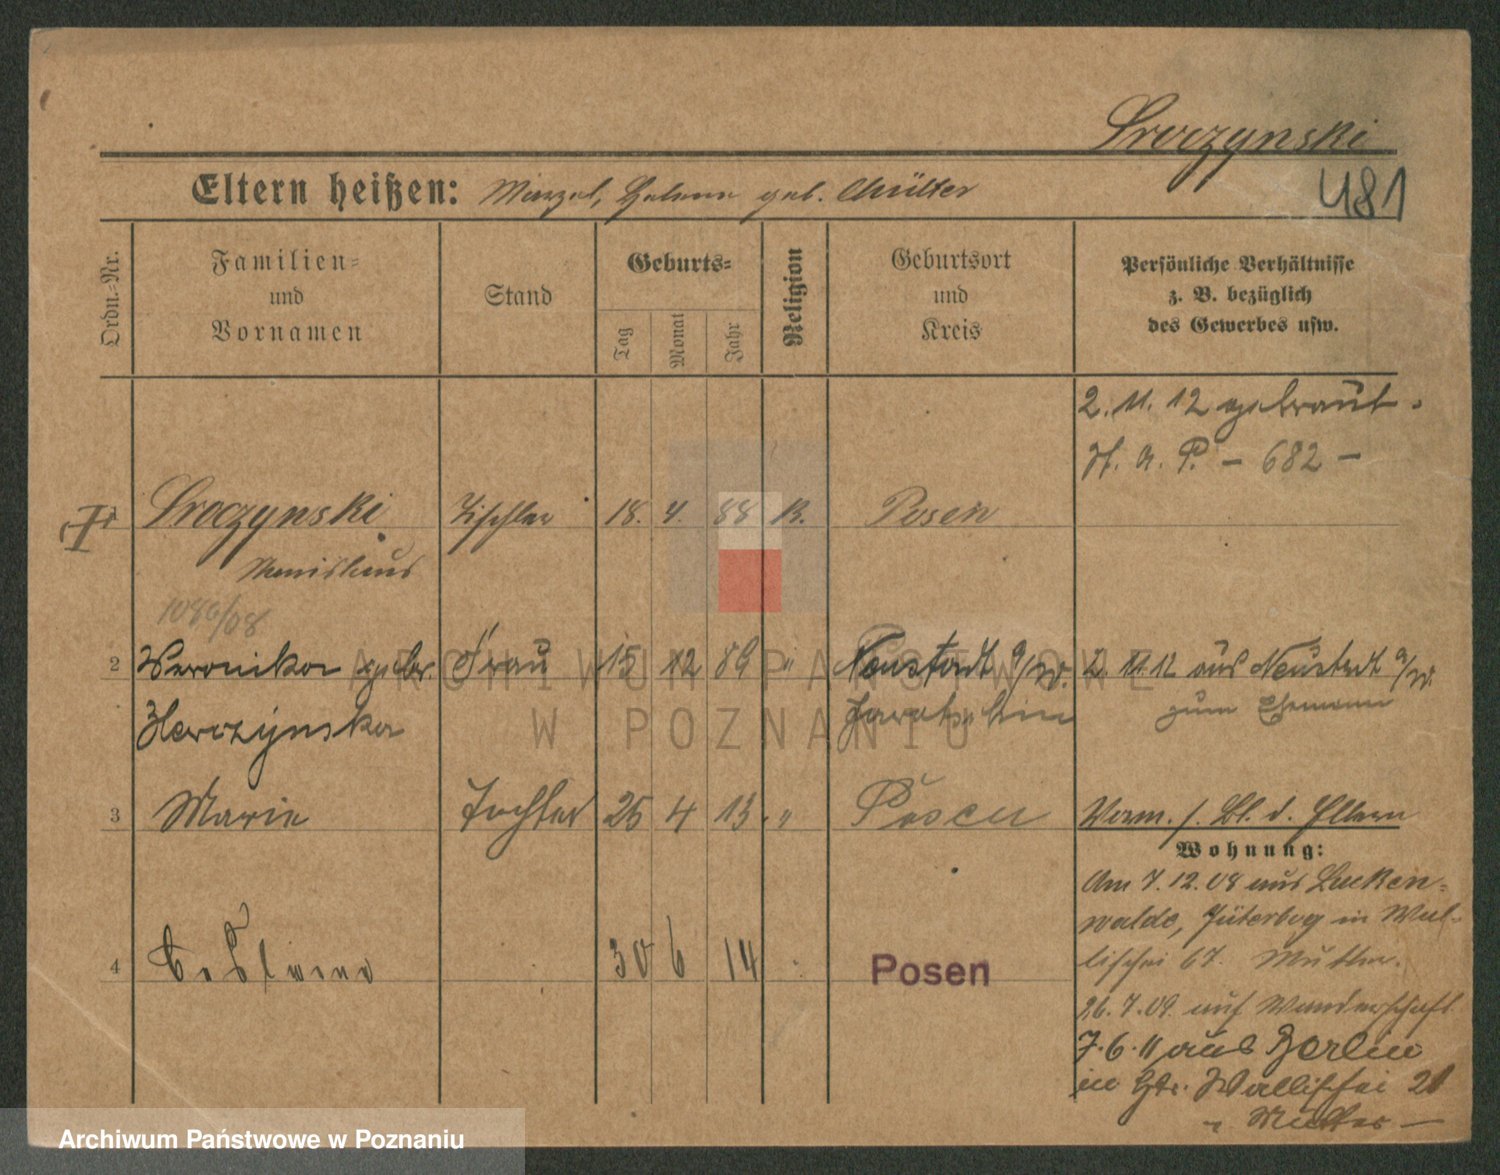 Sroczynski
481
Eltern heißen: Helene geb. Müller
Ordn.-Nr.
Familien-
und
Vornamen
Stand
Geburts-
Tag
Monat
Jahr
Religion
Geburtsort
und
Kreis
Persönliche Verhältnisse
z. B. bezüglich
des Gewerbes usw.
2. 11. 12 getraut.
H. a. P. – 682 –
1 Sroczynski Tischler 18. 4. 88 K. Posen
1086/08
2 Weronika gebor. Frau 15 12 89 " Neustadt a/W. 2. 11. 12 aus Neustadt a/W.
Herczÿnska Jarotschin zum Ehemann
3 Marie Tochter 25 4 13 " Posen Vorm. s. Bl. d. Eltern
Wohnung:
Am 7.12.08 aus Lucken-
walde, Jüterbog in Wal-
lischei 67. Mutter.
4 30 6 14 Posen
26.7.09. auf Wanderschaft
7.6.11 aus Berlin
in Wallischei 21
Mutter –
ARCHIWUM PAŃSTWOWE
W POZNANIU
Archiwum Państwowe w Poznaniu